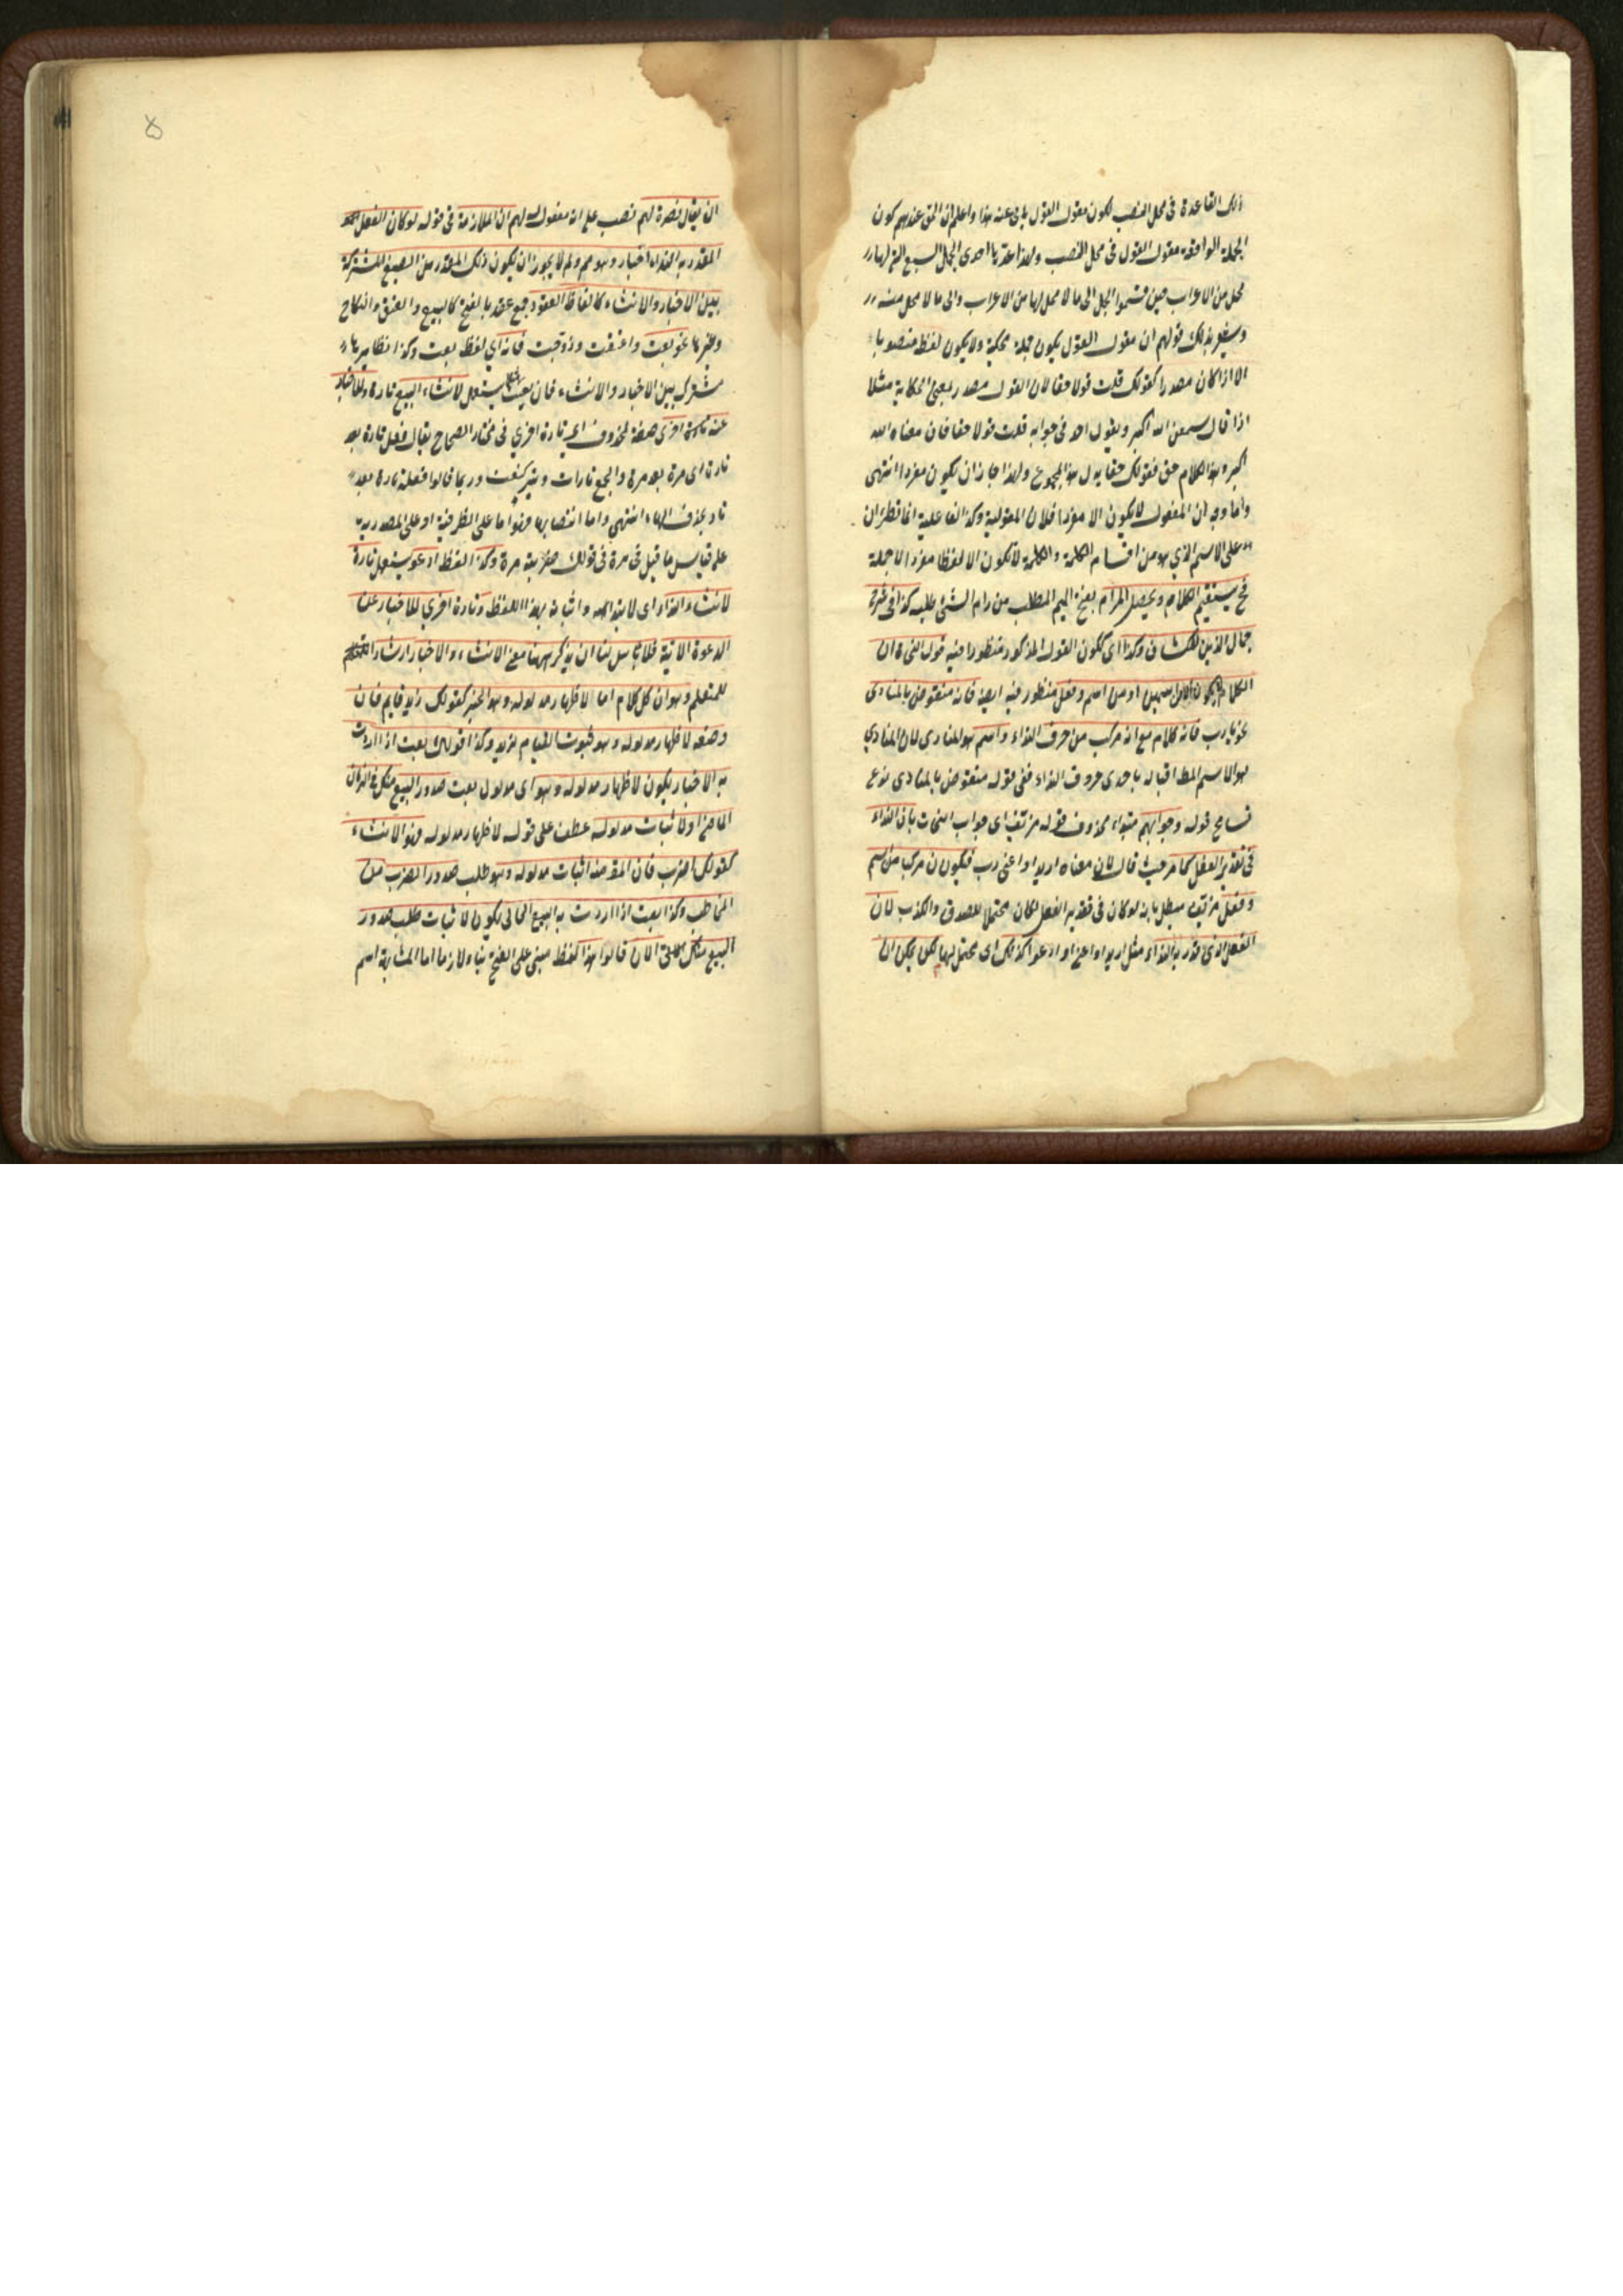 تلك القاعدة في محل النصب لكون مقول القول يأبى عنه هذا واعلم ان الحق عندهم كون
الجملة الواقعة مقول القول في محل النصب ولهذا عدت احدى الجمل السبع التي لها
محل من الاعراب حين قسموا الجمل الى ما لا محل لها من الاعراب والى ما لا محل منه
ويشعر بذلك قولهم ان مقول القول يكون جملة محكية ولا يكون لفظ منصوبا
الا اذا كان مصدرا كقولك قلت قولا حقا لان القول مصدر بمعنى الحكاية مثلا
اذا قال سمعن الله اكبر ويقول احد في جوابه قلت قولا حقا فان معناه الله
اكبر وهذا الكلام حق فقولك حقا يدل هذا المجموع ولهذا جاز ان يكون مفردا انتهى
واما وجه ان المفعول لا يكون الا مفردا فلان المفعولية وكذا الفاعلية انما تطرأن
على الاسم الذي هو من اقسام الكلمة والكلمة لا تكون الا لفظا مفردا لا جملة
فح يستقيم الكلام ويحصل المرام بفتح الميم المطلب من رام الشئ طلبه كذا في شرح
جمال الدين للكشاف وكذا اى ككون القول المذكور منظورا فيه قول النحاة ان
الكلام لا يكون الا من اسمين او من اسم وفعل منظور فيه ايضا فانه منقوض بالمنادى
نحو يا رب فانه كلام مع انه مركب من حرف النداء واسم هو المنادى لان المنادي
هو الاسم المط اقباله باحدى حروف النداء ففي قوله منقوض بالمنادى نوع
تسامح قوله وجوابهم مبتداء محذوف قوله مزيف اى جواب النحات بان النداء
في تقدير الفعل كما مر حيث قال لان معناه اريد او اعنى رب فيكون مركبا من اسم
وفعل مزيف مبطل بانه لو كان في تقدير الفعل لكان محتملا للصدق والكذب لان
الفعل الذى قدر به النداء مثل اريد او اعنى او ادعو كذلك اى محتمل لهما لكن يمكن ان
ان يقال نصرة لهم نصب على انه مفعول له لهم ان الملازمة في قوله لو كان الفعل
المقدر به النداء اخبار وهو مم ولم لا يجوز ان يكون ذلك المقدر من الصيغ المشتركة
بين الاخبار والانشاء كالفاظ العقود جمع عقد بالفتح كالبيع والعتق والنكاح
وغيرها نحو بعت واعتقت وزوجت فانه اي لفظ بعت وكذا نظايرها
مشترك بين الاخبار والانشاء فان بعت يستعمل لانشاء البيع تارة وللاخبار
عنه تارة اخرى صفة لمحذوف اى تارة اخري في مختار الصحاح يقال فعل تارة بعد
تارة اى مرة بعد مرة والجمع تارات وتير كعنب وربما قالوا فعله تارا بعد
تار بحذف الهاء انتهى واما انتصابها فهو اما على الظرفية او على المصدرية
على قياس ما قيل في مرة في قولك ضربته مرة وكذا لفظ ادعو يستعمل تارة
لانشاء النداء اى لابتدائه واثباته بهذا اللفظ وتارة اخري للاخبار عن
الدعوة الاتية فلا باس لنا ان نذكر ههنا معنى الانشاء والاخبار ارشادا
للمتعلم وهو ان كل كلام اما لاظهار مدلوله وهو الخبر كقولك زيد قايم فان
وضعه لاظهار مدلوله وهو ثبوت القيام لزيد وكذا قولك بعت اذا اردت
به الاخبار يكون لاظهار مدلوله وهو اى مدلول بعت صدور البيع منك في الزمان
الماضى او لاثبات مدلوله عطف على قوله لاظهار مدلوله وهو الانشاء
كقولك اضرب فان المقصود منه اثبات مدلوله وهو طلب صدور الضرب من
المخاطب وكذا بعت اذا اردت به البيع الحالى يكون لاثبات طلب صدور
البيع منك الان قالوا هذا لفظ مبني على الفتح بناء لازما اما لمشابهة اسم